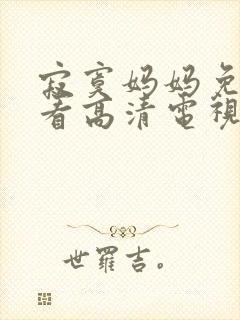 寂寞妈妈免
看高清電視
世羅吉。